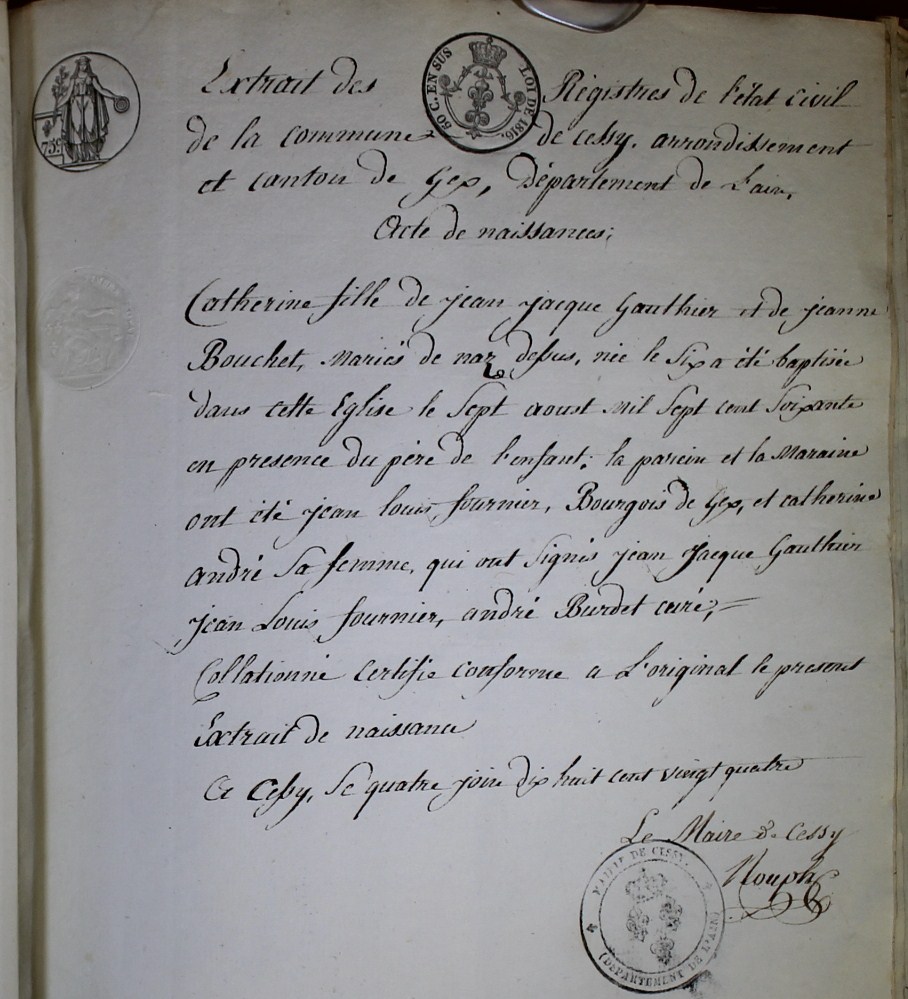 75c
50 C. EN SUS LOI DE 1816.
Extrait des Régistres de l'état civil
de la commune de Cessy. arrondissement
et canton de Gex, Département de L'ain,
Acte de naissances;
Catherine fille de jean jacque Gauthier et de jeanne
Bouchet, Mariés de naz dessus, née le Six a été baptisée
dans cette Eglise le Sept aoust Mil Sept cent Soixante
en presence du père de l'enfant; la parein et la Maraine
ont été jean louis fournier, Bourgois de Gex, et catherine
andré Sa femme, qui ont Signés jean Jacque Gauthier
Jean Louis fournier, andré Burdet curé,=
Collationné Certifie conforme a L'original le present
Extrait de naissance
A Cessy, Le quatre join dix huit cent vingt quatre
Le Maire de Cessy
MAIRIE DE CESSY.
(DÉPARTEMENT DE L'AIN)